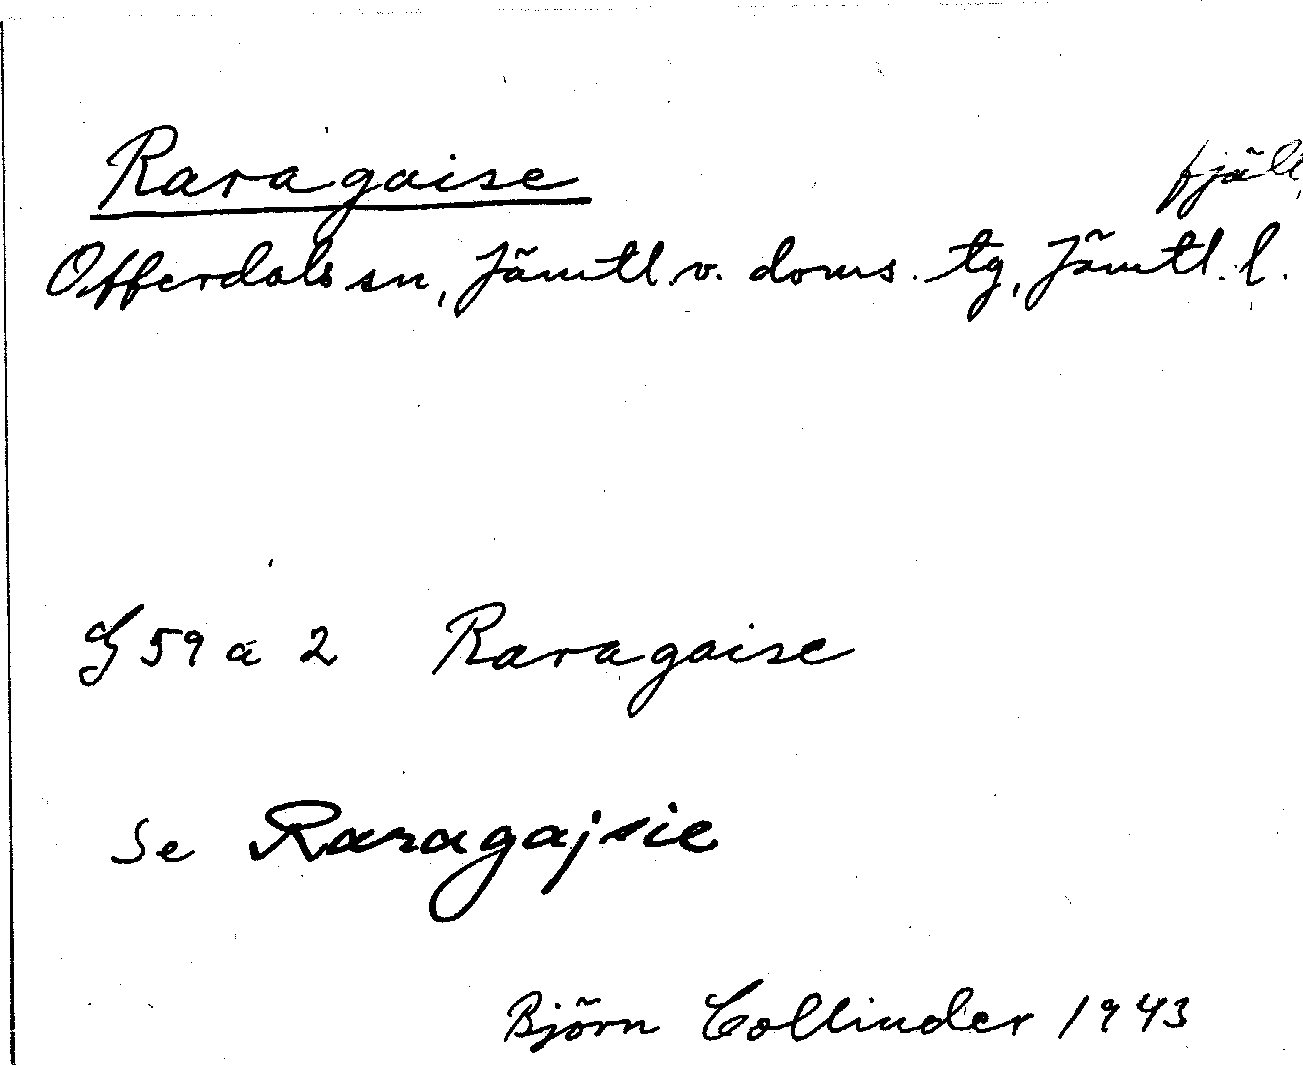 Raragaise fjäll
Offerdals sn, Jämtl. v. doms. tg, Jämtl. l.
G 59 a 2 Raragaise
Se Raragajsie
Björn Collinder 1943